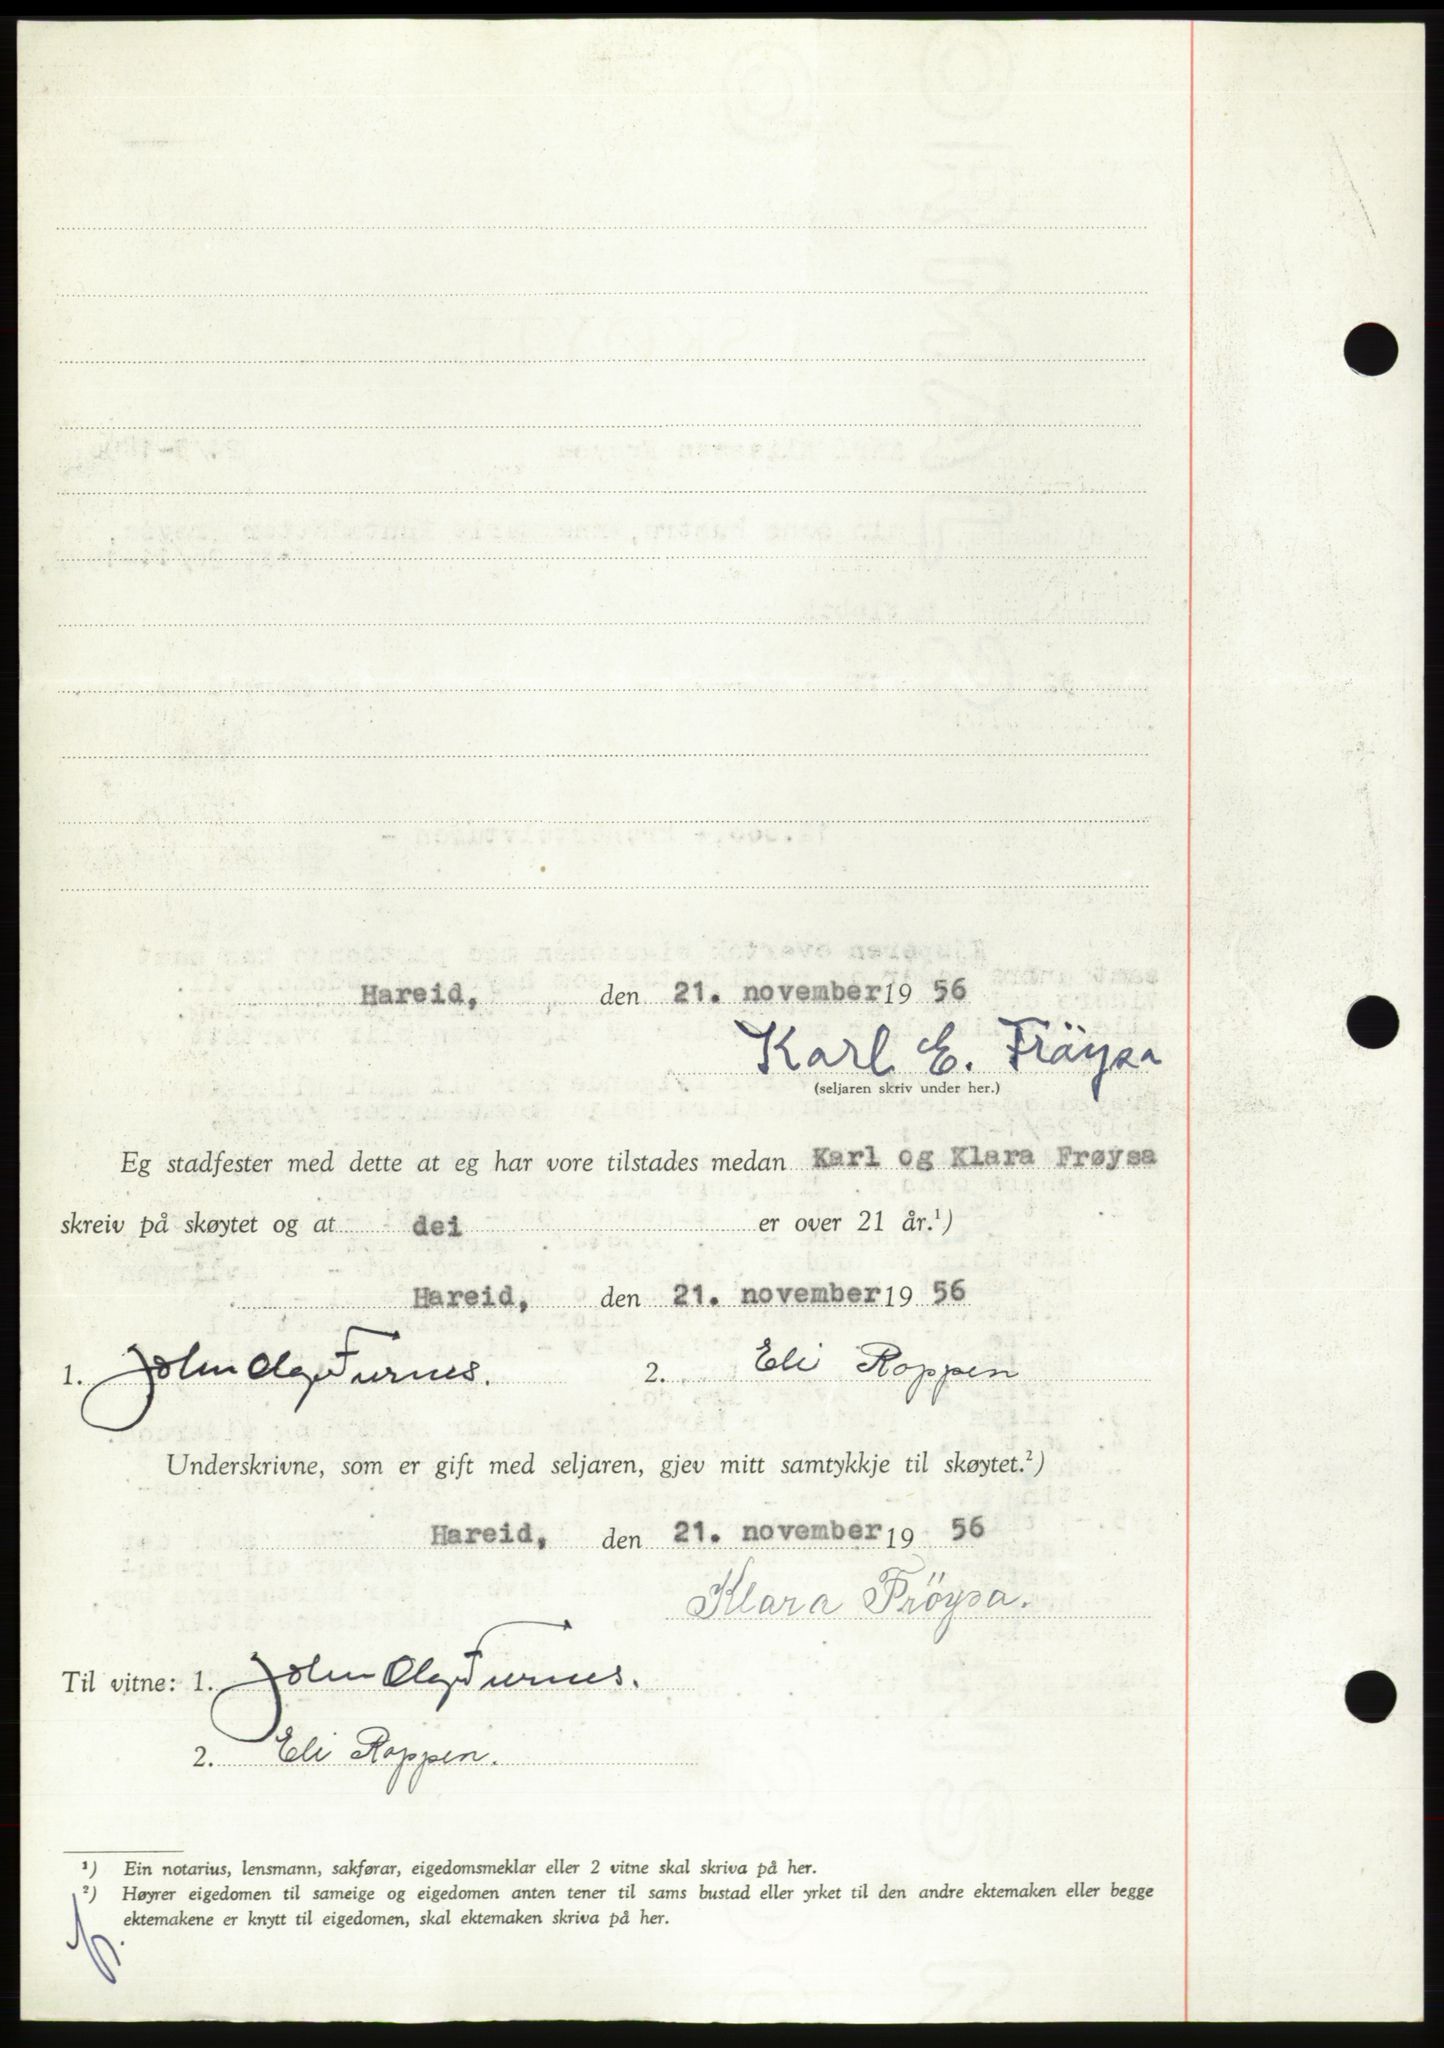 Hareid, den 21. november 19 56
Karl E. Fröysa
(seljaren skriv under her.)
Eg stadfester med dette at eg har vore tilstades medan Karl og Klara Frøysa
skreiv på skøytet og at dei er over 21 år.¹)
Hareid, den 21. november 19 56
1. John Olav Furnes. 2. Eli Roppen
Underskrivne, som er gift med seljaren, gjev mitt samtykkje til skøytet.²)
Hareid, den 21. november 19 56
Klara Fröysa.
Til vitne: 1. John Olav Furnes.
2. Eli Roppen.
¹) Ein notarius, lensmann, sakførar, eigedomsmeklar eller 2 vitne skal skriva på her.
²) Høyrer eigedomen til sameige og eigedomen anten tener til sams bustad eller yrket til den andre ektemaken eller begge
ektemakene er knytt til eigedomen, skal ektemaken skriva på her.